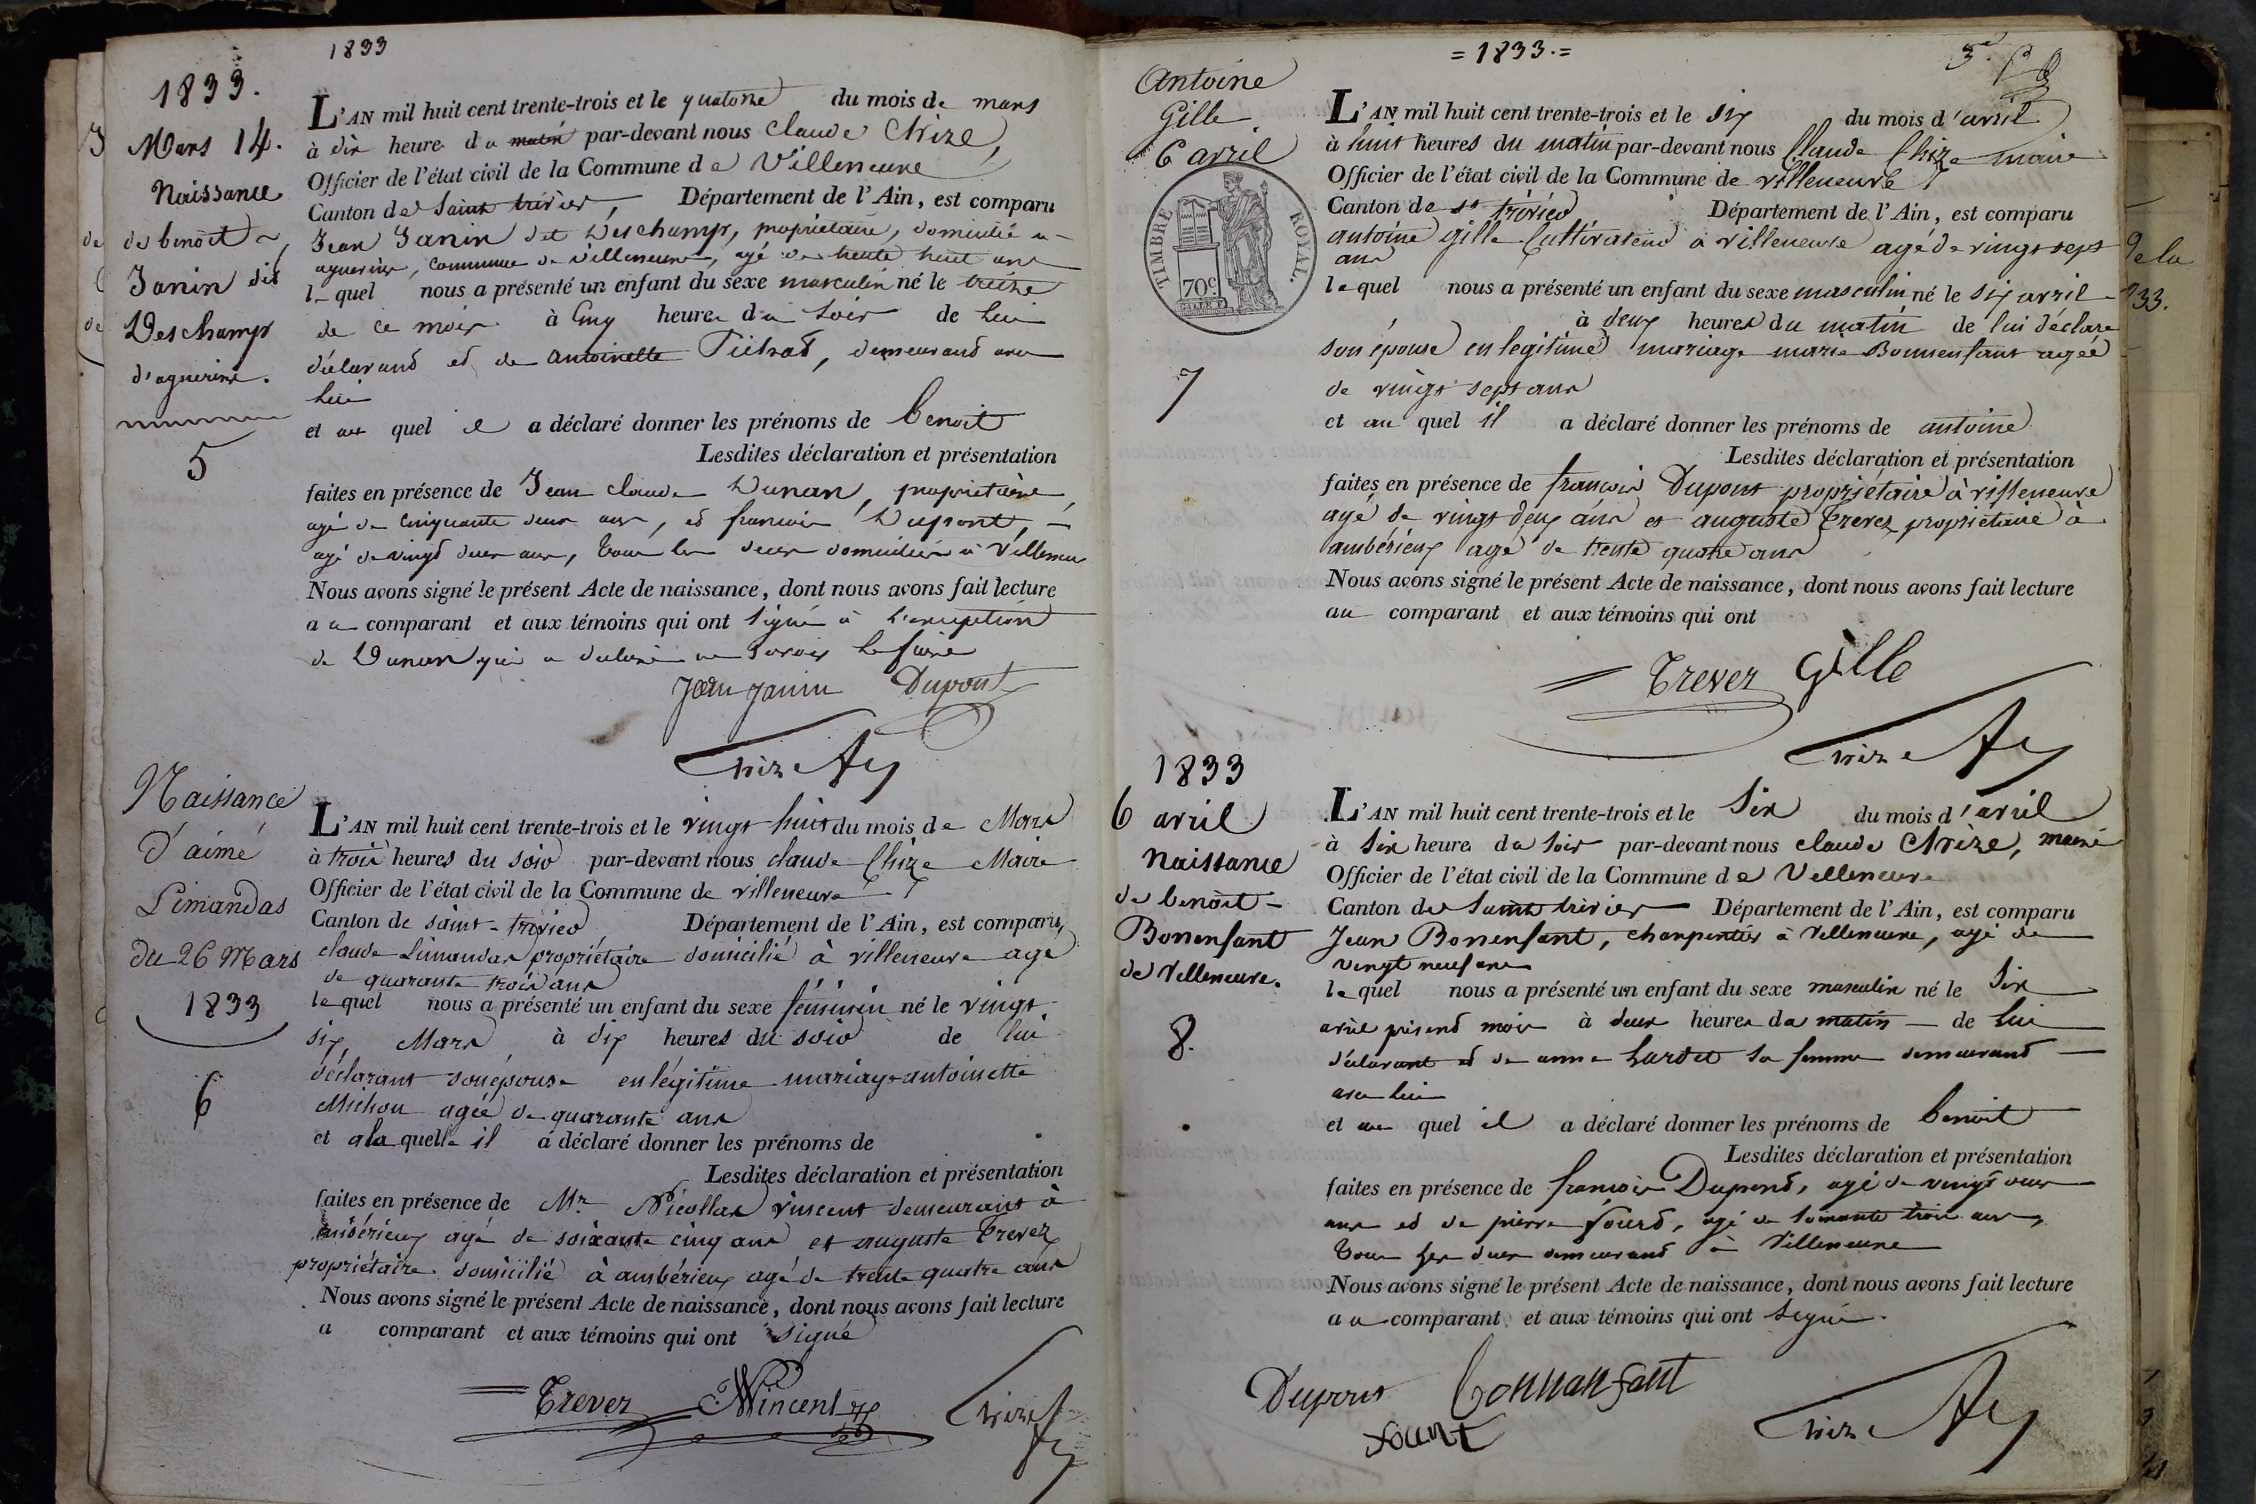 1833
1833.
Mars 14.
Naissance
de benoît
Janin dit
Deschamps
d'aguerins.
5
L'AN mil huit cent trente-trois et le quatorze du mois de mars
à dix heure du matin par-devant nous Claude Chize,
Officier de l'état civil de la Commune de Villeneuve
Canton de Saint trivier, Département de l'Ain, est comparu
Jean Janin dit Deschamps, propriétaire, domicilié a
aguerins, commune de Villeneuve, agé de trente huit ans
le quel nous a présenté un enfant du sexe masculin né le treize
de ce mois à Cinq heure du Soir de lui
déclarant et de antoinette demeurant avec
lui
et au quel il a déclaré donner les prénoms de benoit
Lesdites déclaration et présentation
faites en présence de Jean claude Dunan, propriétaire,
agé de Cinquante deux ans, et francois Dupont,
agé de vingt deux ans, tous les deux domiciliés à Villeneuve
Nous avons signé le présent Acte de naissance, dont nous avons fait lecture
au comparant et aux témoins qui ont Signé à L'exception
de Dunan qui a déclaré ne Savoir le faire
Jean Janin Dupont
Chize
Naissance
d'aimé
Limandas
du 26 Mars
1833
6
L'AN mil huit cent trente-trois et le vingt huit du mois de Mars
à trois heures du soir par-devant nous claude Chize Maire
Officier de l'état civil de la Commune de villeneuve
Canton de saint-trivier Département de l'Ain, est comparu
claude Limandas propriétaire domicilié à villeneuve agé
de quarante trois ans
le quel nous a présenté un enfant du sexe féminin né le vingt
six Mars à dix heures du soir de lui
déclarant son épouse en légitime mariage antoinette
Michon agée de quarante ans
et a la quelle il a déclaré donner les prénoms de
Lesdites déclaration et présentation
faites en présence de Mr Nicollas vincent demeurant à
ambérieux agé de soixante cinq ans et auguste Trever
propriétaire domicilié à ambérieux agé de trente quatre ans
Nous avons signé le présent Acte de naissance, dont nous avons fait lecture
a comparant et aux témoins qui ont signé
Trever Vincent Chize
=1833.=
3e
Antoine
Gille
6 avril
TIMBRE ROYAL.
70c
7
L'AN mil huit cent trente-trois et le six du mois d'avril
à huit heures du matin par-devant nous Claude Chize maire
Officier de l'état civil de la Commune de villeneuve
Canton de st trivier Département de l'Ain, est comparu
antoine gille Cultivateur à villeneuve agé de vingt sept
ans
le quel nous a présenté un enfant du sexe masculin né le six avril
à deux heures du matin de lui déclare
son épouse en legitime mariage marie Bonnenfant agée
de vingt sept ans
et au quel il a déclaré donner les prénoms de antoine
Lesdites déclaration et présentation
faites en présence de françois Dupont propriétaire à villeneuve
agé de vingt deux ans et auguste Trever propriétaire à
ambérieux agé de trente quatre ans
Nous avons signé le présent Acte de naissance, dont nous avons fait lecture
au comparant et aux témoins qui ont
Trever Gille
Chize
1833
6 avril
Naissance
de benoît
Bonenfant
de Villeneuve.
8.
L'AN mil huit cent trente-trois et le Six du mois d'avril
à Six heure du Soir par-devant nous claude Chize, maire
Officier de l'état civil de la Commune de Villeneuve
Canton de Saint trivier Département de l'Ain, est comparu
Jean Bonenfant, charpentier à Villeneuve, agé de
vingt neuf ans
le quel nous a présenté un enfant du sexe masculin né le Six
avril présent mois à deux heure du matin de lui
déclarant et de anne sa femme demeurant
avec lui
et au quel il a déclaré donner les prénoms de benoit
Lesdites déclaration et présentation
faites en présence de francois Dupont, agé de vingt deux
ans et de pierre fourt, agé de Soixante trois ans,
tous les deux demeurant à Villeneuve
Nous avons signé le présent Acte de naissance, dont nous avons fait lecture
au comparant et aux témoins qui ont Signé.
Dupont bonnanfant
fount
Chize
de la
33.